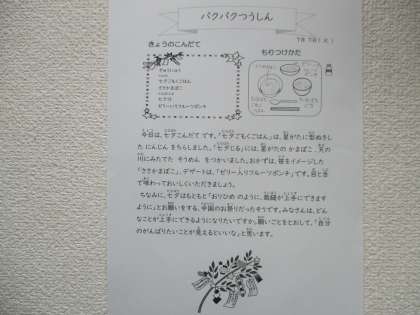 パクパクつうしん
7月 7日( 火 )
きょうのこんだて
もりつけかた
ぎゅうにゅう
七夕ごもくごはん
ささかまぼこ
七夕汁
ゼリー入りフルーツポンチ
今日は、七夕こんだて です。「七夕ごもくごはん」は、星がたに型ぬきし
た にんじん をちらしました。「七夕じる」には、星がたの かまぼこ、天の
川にみたてた そうめん をつかいました。おかずは、笹をイメージした
「ささかまぼこ」、デザートは、「ゼリー入りフルーツポンチ」です。目と舌
で味わっておいしくいただきましょう。
ちなみに、七夕はもともと「おりひめ のように、裁縫が上手にできます
ように」とお願いをする、中国のお祭りだったそうです。みなさんは、どん
なことが上手にできるようになりたいですか。願いごとをとおして、「自分
のがんばりたいことが見えるといいな」と思います。